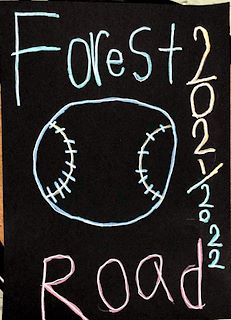 Forest
2021/2022
Road